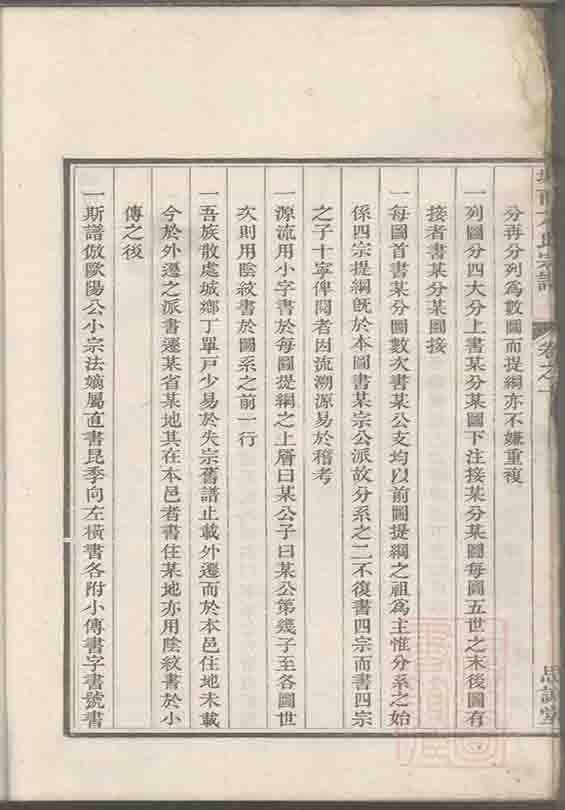 卷之一
思謙堂
分再分列爲數圖而提綱亦不嫌重複
一列圖分四大分上書某分某圖下注接某分某圖每圖五世之末後圖有
接者書某分某圖接
一每圖首書某分圖數次書某公支均以前圖提綱之祖爲主惟分系之始
係四宗提綱既於本圖書某宗公派故分系之二不復書四宗而書四宗
之子十寧俾閱者因流溯源易於稽考
一源流用小字書於每圖提綱之上層曰某公子曰某公第幾子至各圖世
次則用陰紋書於圖系之前一行
一吾族散處城鄉丁單戶少易於失宗舊譜止載外遷而於本邑住地未載
今於外遷之派書遷某省某地其在本邑者書住某地亦用陰紋書於小
傳之後
一斯譜倣歐陽公小宗法嫡屬直書昆季向左橫書各附小傳書字書號書